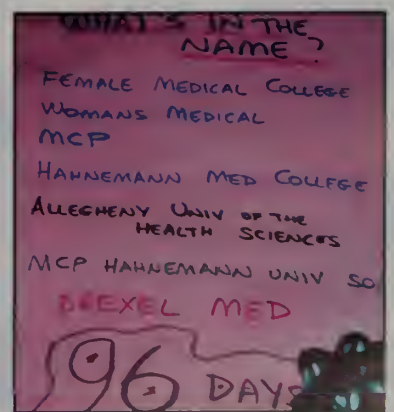 WHAT'S IN THE
NAME?
FEMALE MEDICAL COLLEGE
WOMANS MEDICAL
MCP
HAHNEMANN MED COLLEGE
ALLEGHENY UNIV OF THE
HEALTH SCIENCES
MCP HAHNEMANN UNIV SO
DREXEL MED
96 DAYS